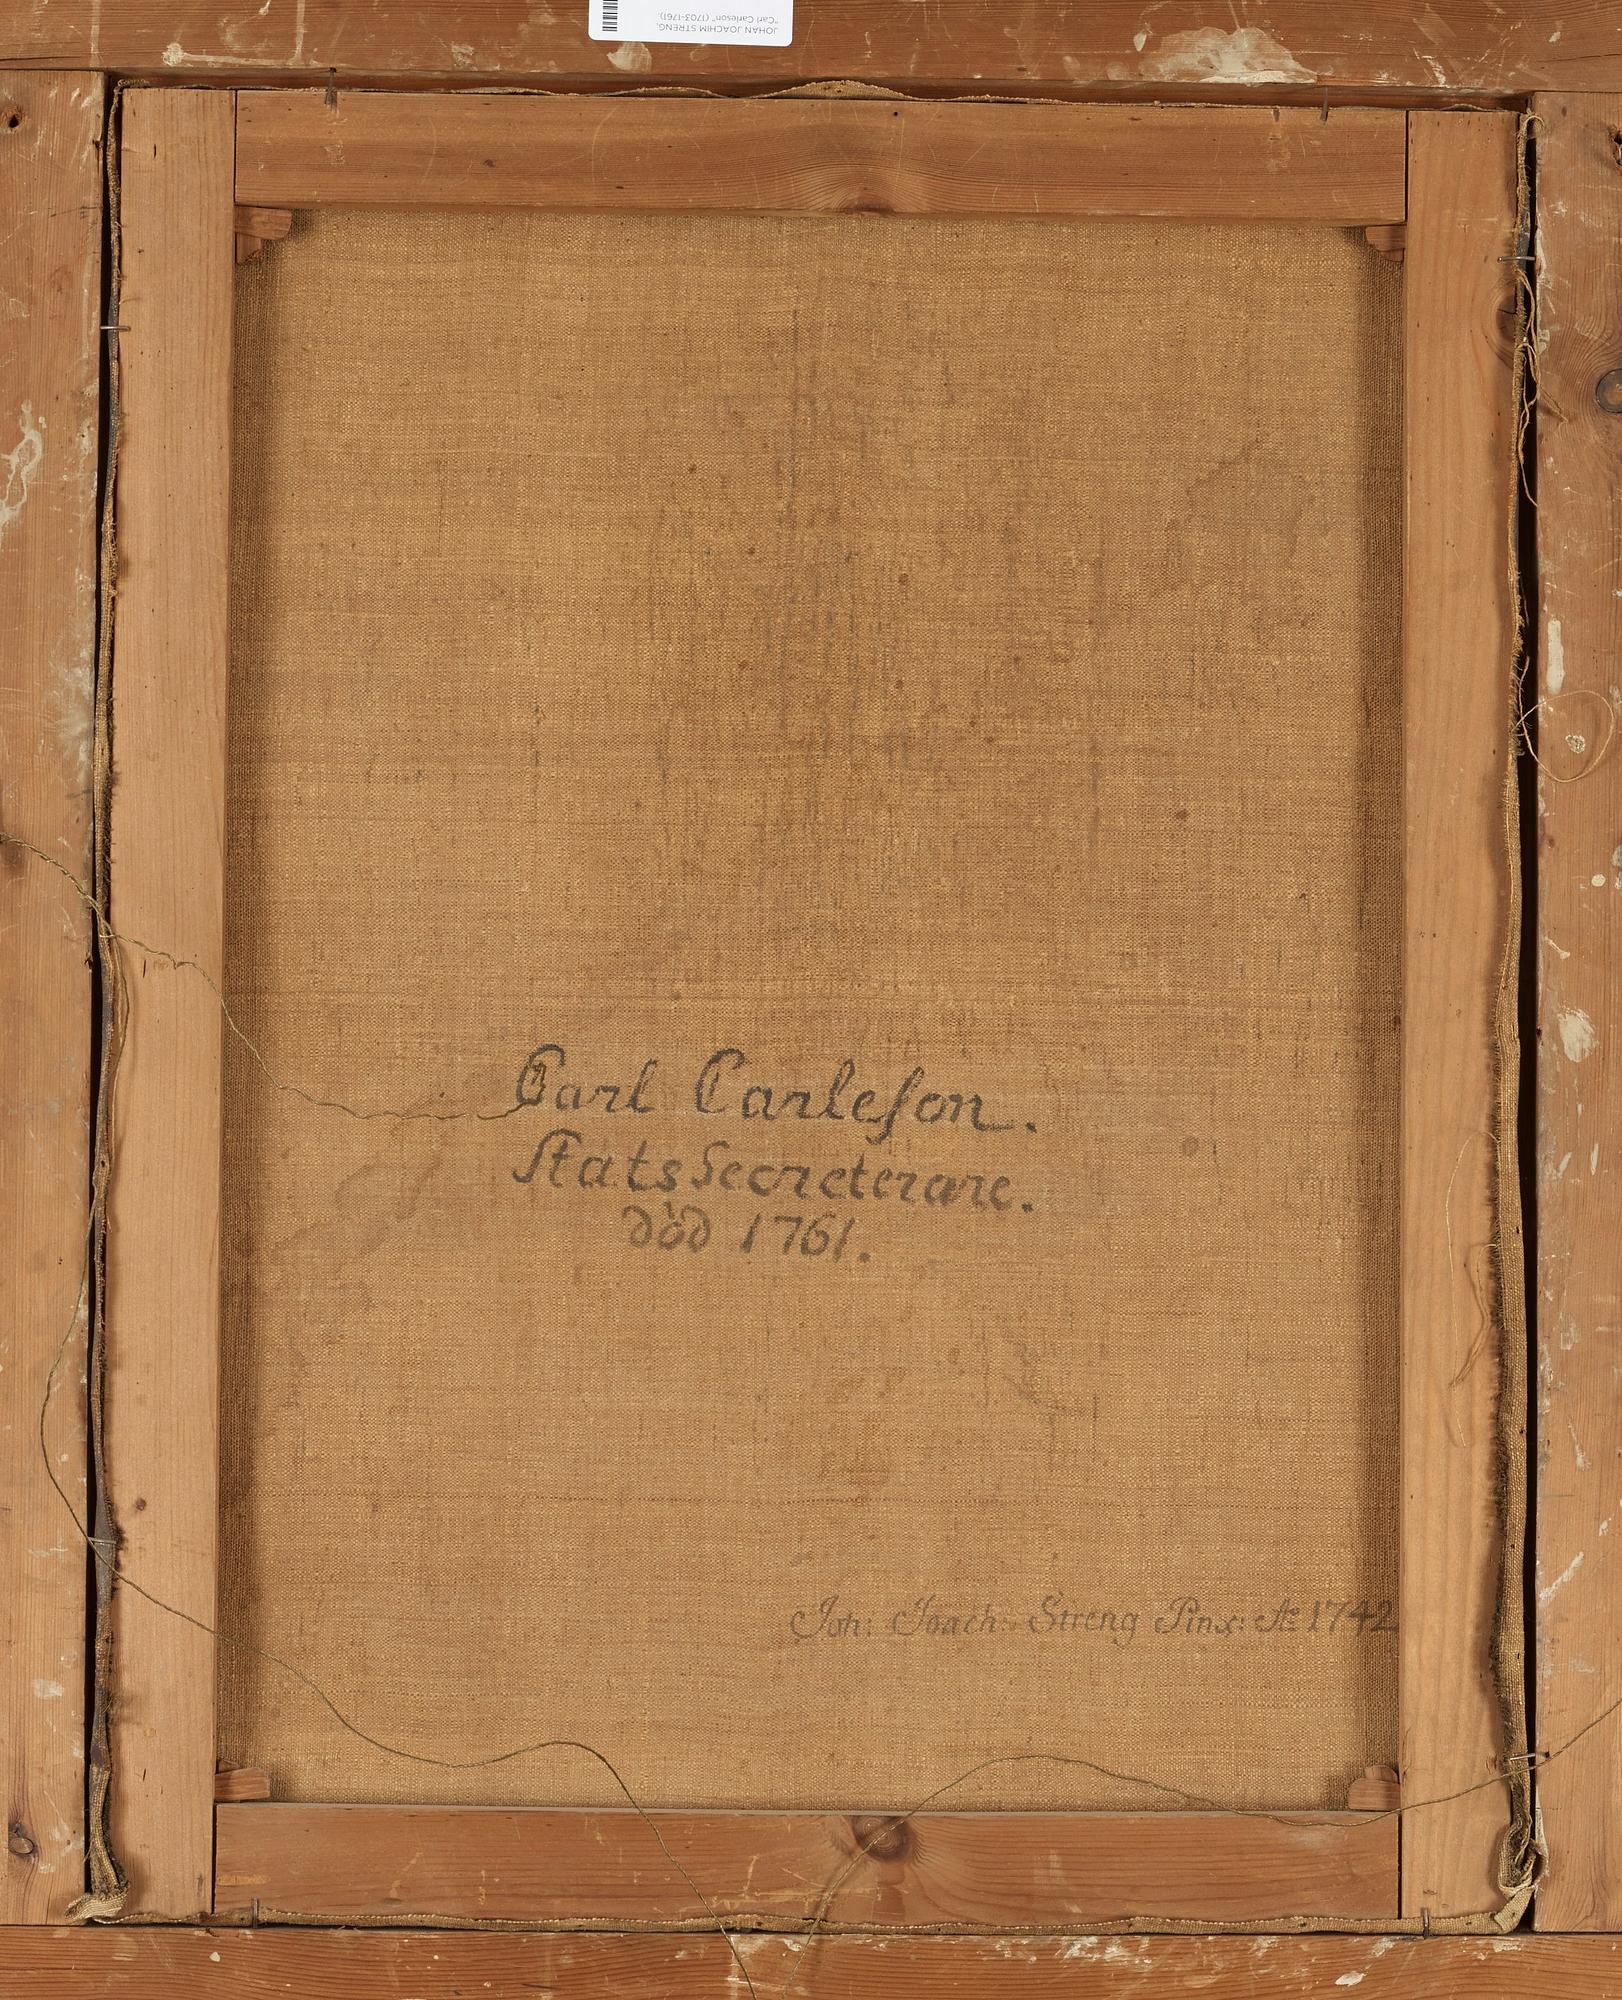 JOHAN JOACHIM STRENG,
"Carl Carleson" (1703-1761).
Carl Carleſon.
StatsSecreterare.
död 1761.
Joh: Joach: Streng Pinx: Ao 1742